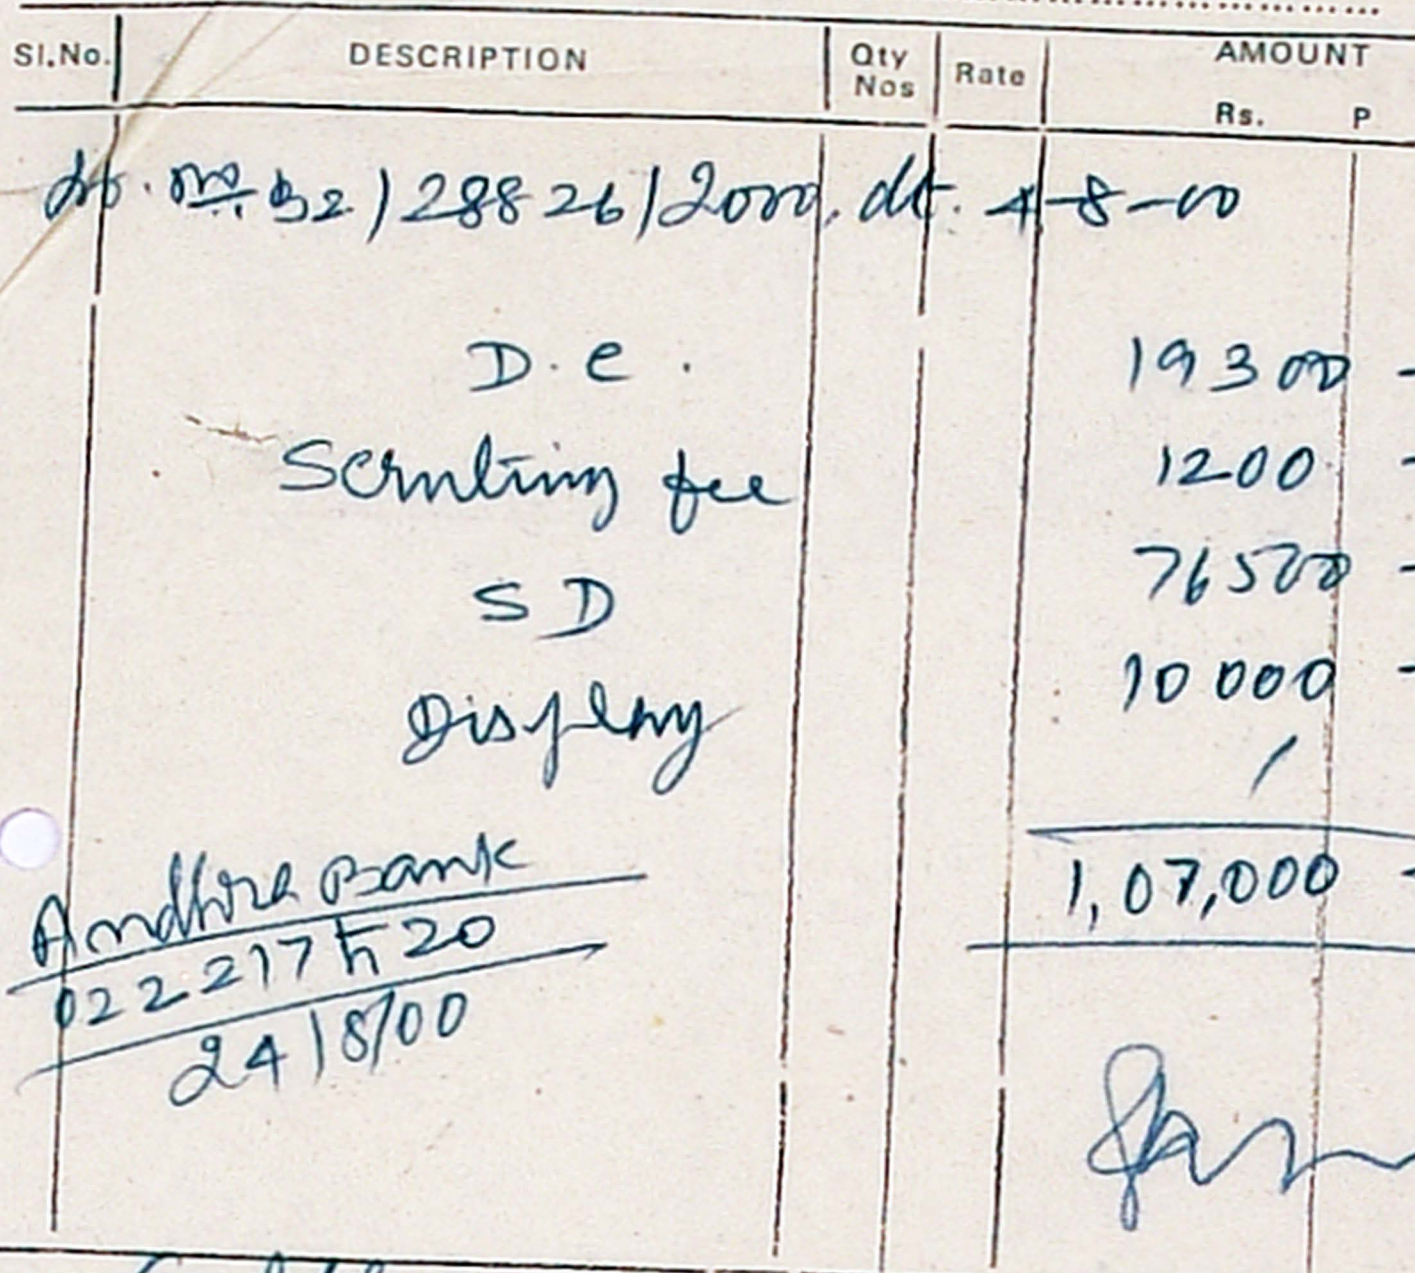 Sl.No. DESCRIPTION Qty Nos Rate AMOUNT Rs. P
32/28826/2000, dt. 4-8-00
D.C. 19300 -
Scruting fee 1200 -
SD 76500 -
Display 10000 -
1,07,000 -
Andhra Bank
022217 20
24/8/00